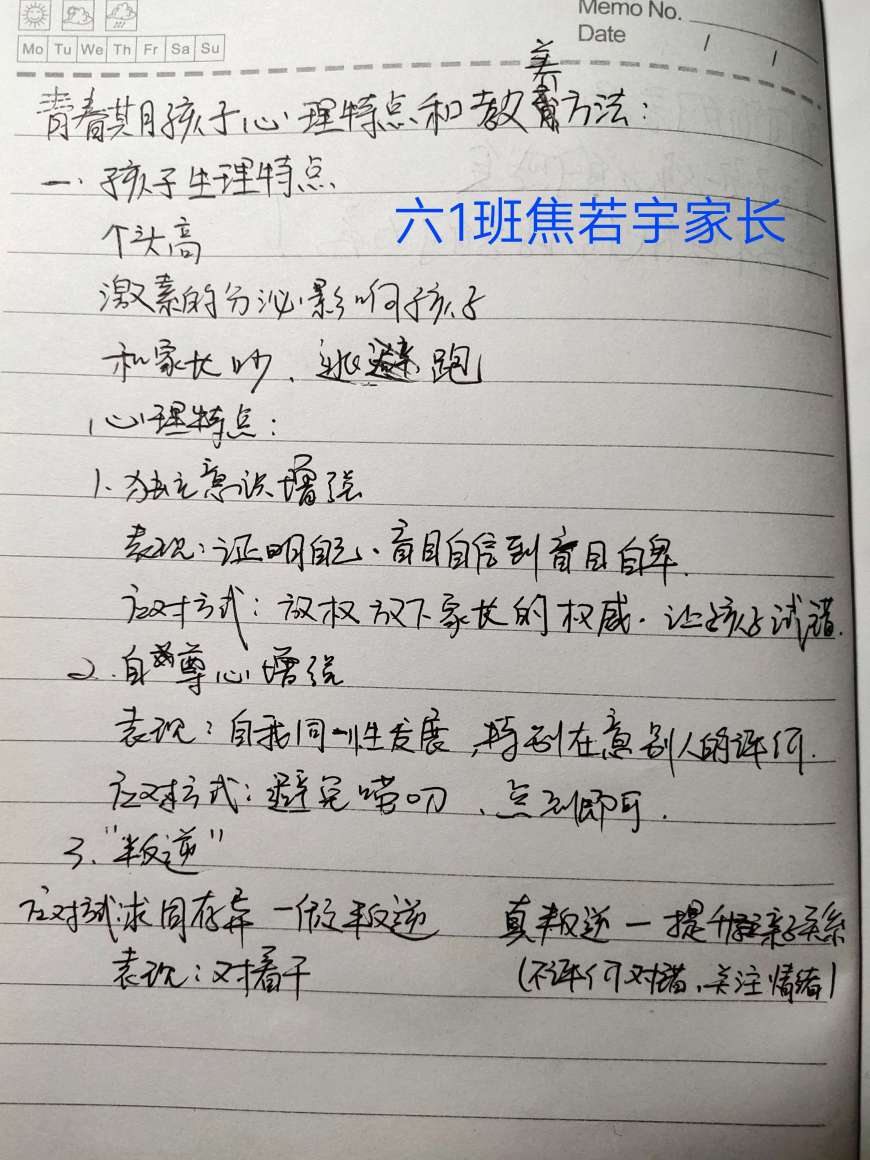 Memo No.
Mo Tu We Th Fr Sa Su
Date / /
青春期孩子心理特点和教养方法：
一.孩子生理特点
六1班焦若宇家长
个头高
激素的分泌影响孩子
和家长吵、逃跑
心理特点：
1.独立意识增强
表现：证明自己、盲目自信到盲目自卑.
应对方式：放权放下家长的权威.让孩子试错.
2.自尊心增强
表现：自我同一性发展,特别在意别人的评价.
应对方式：避免唠叨、点到即可.
3."叛逆"
应对方式:求同存异—假叛逆 真叛逆—提升亲子关系
表现：对着干 (不评价对错,关注情绪)